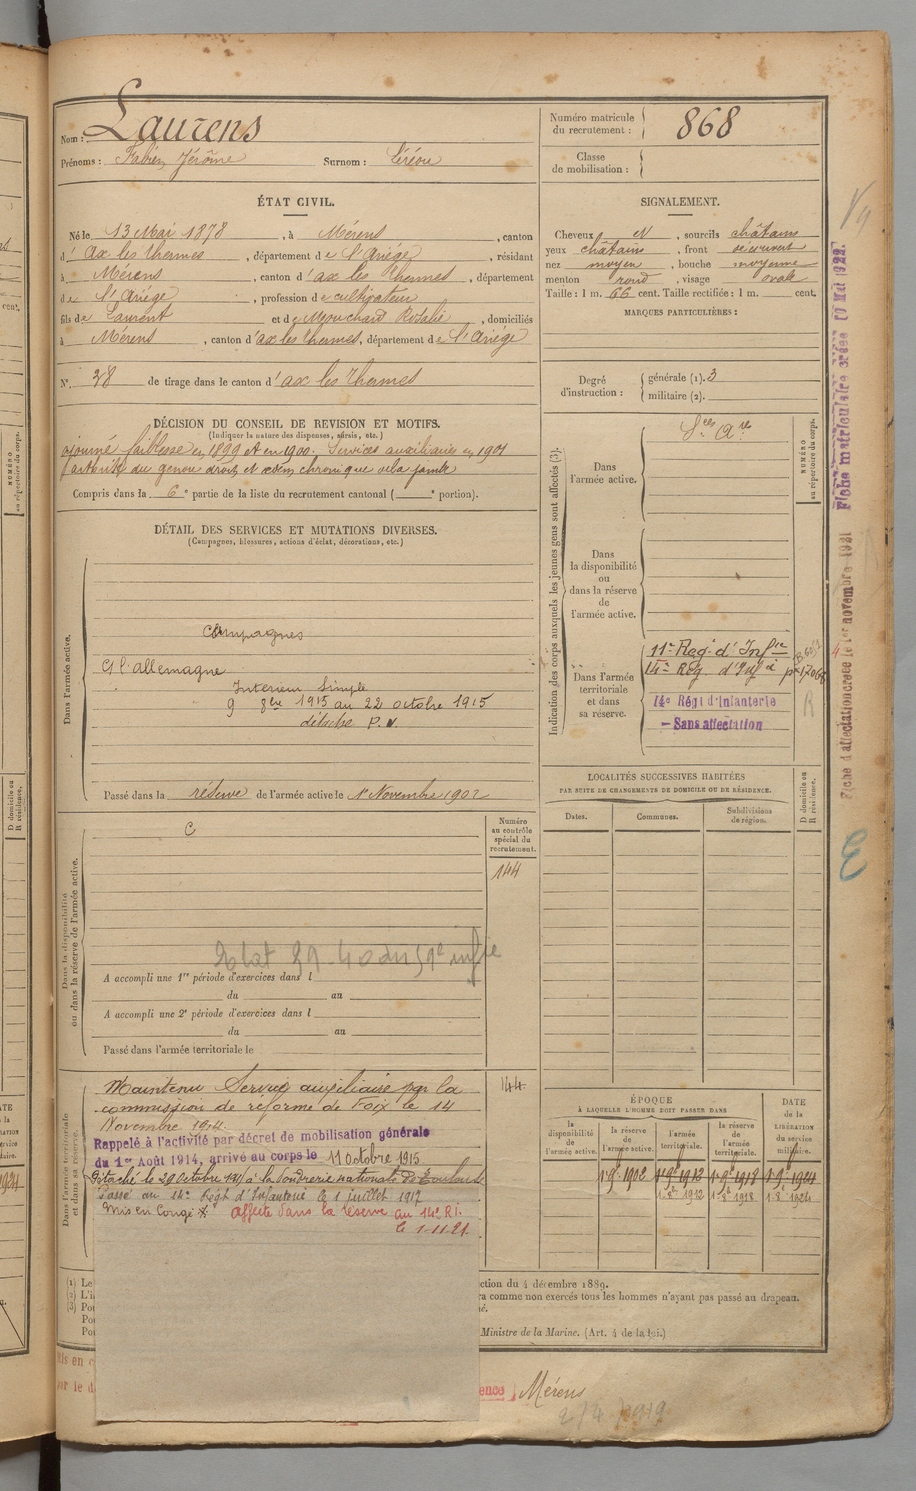 Nom : Laurens
Prénoms : Fabien Jérôme Surnom :
Numéro matricule du recrutement : 868
Classe de mobilisation :
ÉTAT CIVIL.
Né le 13 Mai 1878, à Mérens, canton
d'Ax les thermes, département de l'Ariége, résidant
à Mérens, canton d'ax les thermes, département
de l'Ariége, profession de cultivateur
fils de Laurent et de Mouchard Rosalie, domiciliés
à Mérens, canton d'ax les thermes, département de l'Ariége
N° 38 de tirage dans le canton d'ax les thermes
SIGNALEMENT.
Cheveux et, sourcils châtains
yeux châtains, front découvert
nez moyen, bouche moyenne
menton rond, visage ovale
Taille : 1 m. 66 cent. Taille rectifiée : 1 m. cent.
MARQUES PARTICULIÈRES :
Degré d'instruction : générale (1). 3
militaire (2).
DÉCISION DU CONSEIL DE REVISION ET MOTIFS.
(Indiquer la nature des dispenses, sursis, etc.)
ajourné faiblesse en 1899 et en 1900. Services auxiliaires en 1901
du genou droit et chronique de la jambe
Compris dans la 6e partie de la liste du recrutement cantonal ( e portion).
DÉTAIL DES SERVICES ET MUTATIONS DIVERSES.
(Campagnes, blessures, actions d'éclat, décorations, etc.)
Dans l'armée active.
Campagnes
C/ l'allemagne
Interieur Simple
9 8bre 1915 au 22 octobre 1915
détaché
Passé dans la réserve de l'armée active le 1er Novembre 1902
Indication des corps auxquels les jeunes gens sont affectés (3).
NUMÉRO au répertoire du corps.
Dans l'armée active.
Dans la disponibilité ou dans la réserve de l'armée active.
Dans l'armée territoriale et dans sa réserve.
11e Reg. d'Infie
14e Reg. d'Infie
14e Régt d'Infanterie
– Sans affectation
LOCALITÉS SUCCESSIVES HABITÉES
PAR SUITE DE CHANGEMENTS DE DOMICILE OU DE RÉSIDENCE.
D domicile ou R résidence.
Dates. Communes. Subdivisions de région.
Dans la disponibilité ou dans la réserve de l'armée active.
Numéro au contrôle spécial du recrutement.
144
A accompli une 1re période d'exercices dans l
du au
A accompli une 2e période d'exercices dans l
du au
Passé dans l'armée territoriale le
Dans l'armée territoriale et dans sa réserve.
144
Maintenu Service auxiliaire par la
commission de réforme de Foix le 14
Novembre 1914.
Rappelé à l'activité par décret de mobilisation générale
du 1er Août 1914, arrivé au corps le 11 octobre 1915
Détaché le 22 octobre 1915 à la Poudrerie nationale de Toulouse
Passé au 14e Régt d'Infanterie le 1 juillet 1917
Mis en Congé
affecté dans la réserve au 14e R.I.
le 1-11-21.
ÉPOQUE
À LAQUELLE L'HOMME DOIT PASSER DANS
DATE de la LIBÉRATION du service militaire.
la disponibilité de l'armée active.
la réserve de l'armée active.
l'armée territoriale.
la réserve de l'armée territoriale.
1 9e 1902 1 9e 1912 1 9e 1918 1 9e 1924
1-8e 1912 1-8-1918 1-8-1924
(1) Le
(2) L'i
(3) Po
Po
Po
ction du 4 décembre 1889.
ra comme non exercés tous les hommes n'ayant pas passé au drapeau.
Ministre de la Marine. (Art. 4 de la loi.)
Mis en c
par le d
ence
Mérens
2/4/1919
Fiche matriculaire créée
Mai 1922.
Fiche d'affectation créée le 1er novembre 1921